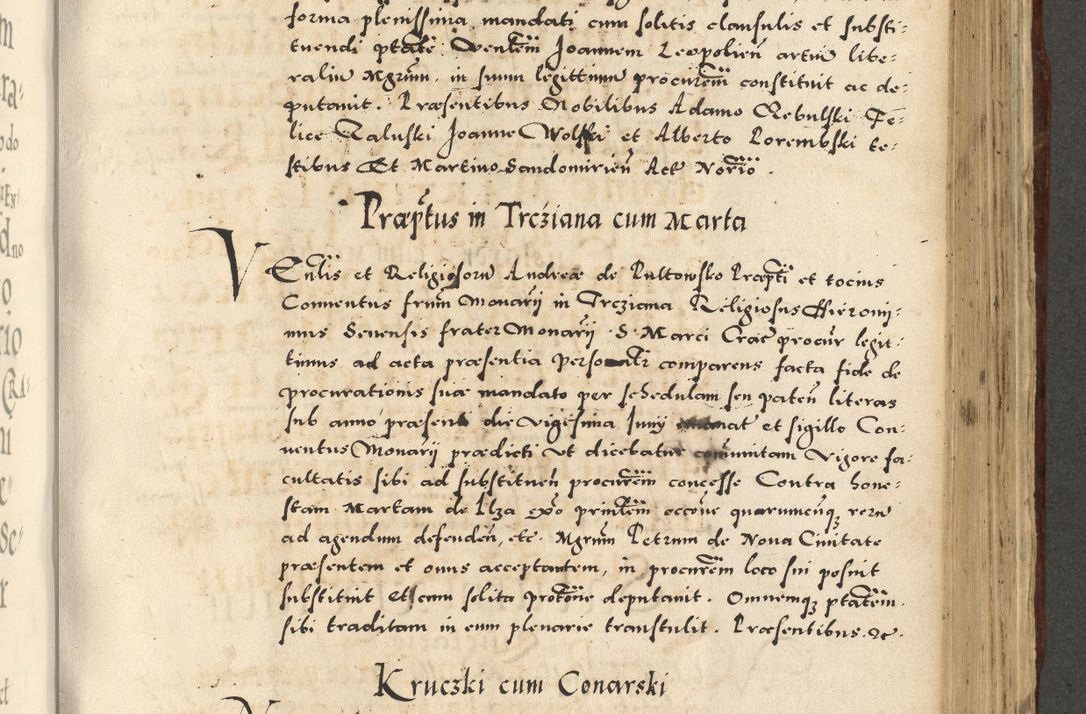 forma plenissima mandati cum solitis clausulis et substi-
tuendi ptate Ventem Joannem Leopolien artiu libe-
raliu Mgrum. in suum legittimu procurem constituit ac de-
putauit. Præsentibus Nobilibus Adamo Rebulski Fe-
lice Kaluski Joanne Wolski et Alberto Porembski te-
stibus Et Martino Sandomirien Act Norio.
Præptus in Trcziana cum Marta
VEnlis et Religiosoru Andreæ de Pultowsko Præpti et tocius
Conuentus frum Monarij in Trcziana Religiosus Hieroni-
mus Senensis frater Monarij S. Marci Crac procur legit-
timus ad acta præsentia personatr comparens facta fide de
procurationis suæ mandato per schedulam seu paten literas
sub anno præsenti die vigesima Junij et sigillo Con-
uentus Monarij prædicti vt dicebatur communitam vigore fa-
cultatis sibi ad substituen procurem concesse Contra hone-
stam Martam de Ilza exo printem occoue quarumcunq reru
ad agendum defenden, etc. Mgrum Petrum de Noua Ciuitate
præsentem et onus acceptantem, in procurem loco sui posuit
substituit et cum solita protone deputauit. Omnemq ptatem
sibi traditam in eum plenarie transtulit. Præsentibus. etc.
Kruczki cum Conarski